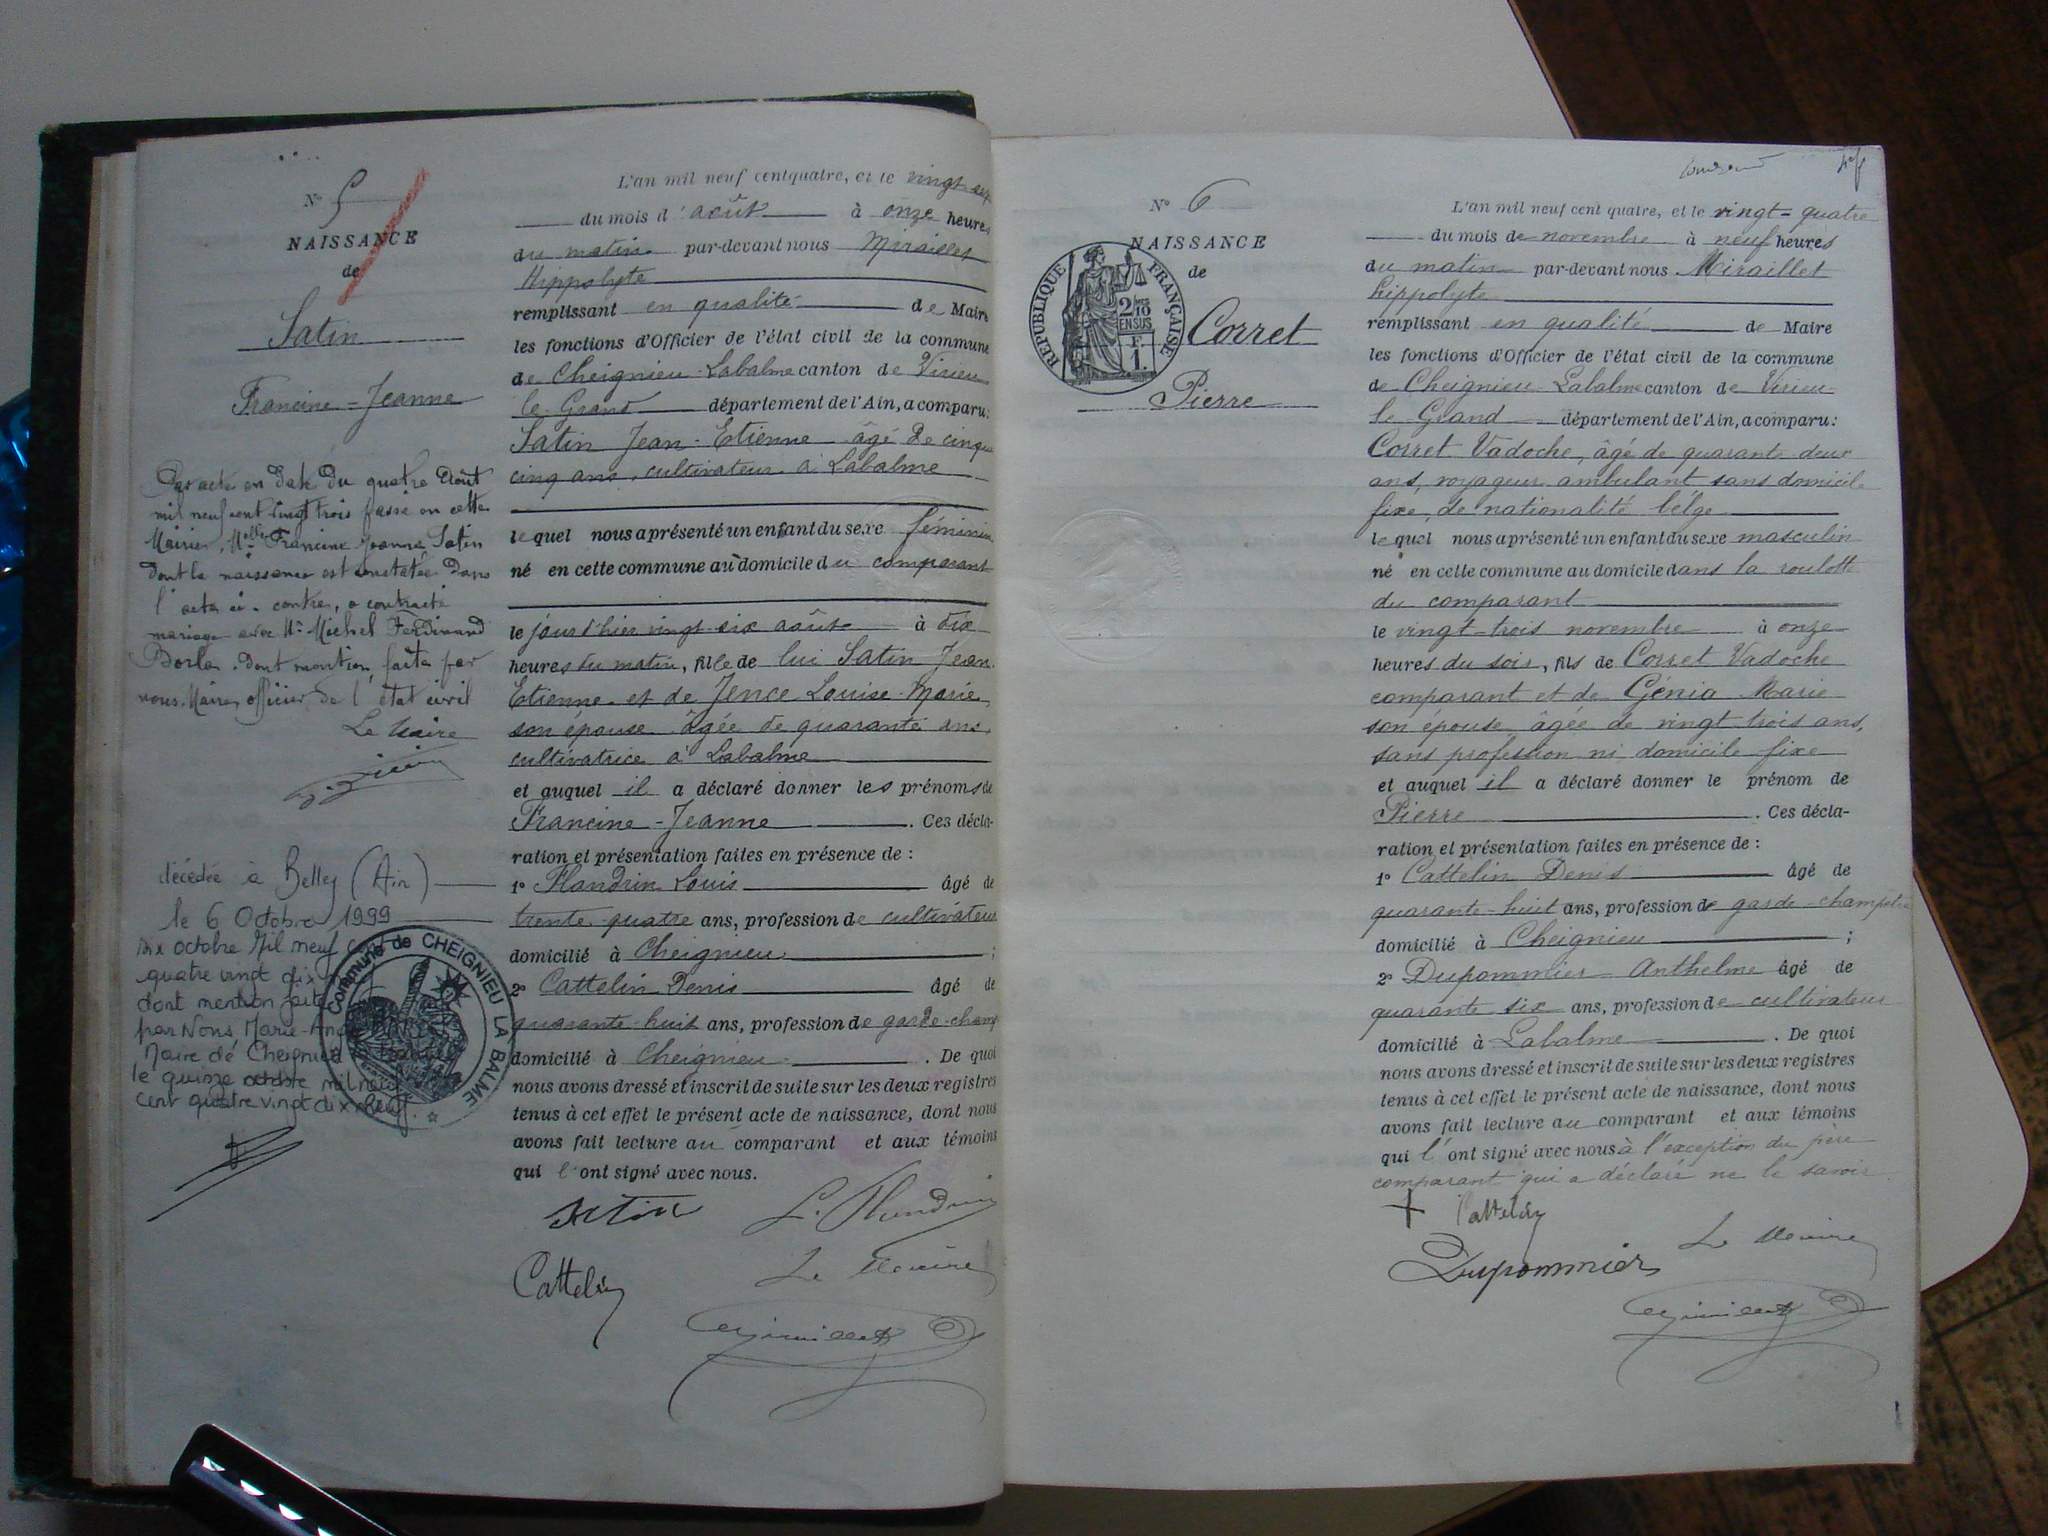 N° 5
NAISSANCE
de
Satin
Francine-Jeanne
Par acte en date du quatre Août
mil neuf cent vingt trois passé en cette
Mairie, Melle Francine Jeanne Satin
dont la naissance est constatée dans
l'acte ci-contre, a contracté
mariage avec Mr Michel Ferdinand
dont mention faite par
nous Maire officier de l'état civil
Le Maire
décédée à Belley (Ain)
le 6 Octobre 1999
six octobre Mil neuf cent
quatre vingt dix
dont mention faite
par Nous Marie-Ange
Maire de Cheignieu
le quinze octobre mil neuf
cent quatre vingt dix neuf.
Commune de CHEIGNIEU LA BALME
L'an mil neuf cent quatre, et le vingt sept
du mois d'août à onze heures
du matin par-devant nous Miraillet
Hippolyte
remplissant en qualité de Maire
les fonctions d'Officier de l'état civil de la commune
de Cheignieu-Labalme canton de Virieu
le Grand département de l'Ain, a comparu:
Satin Jean-Etienne âgé de cinqu
cinq ans, cultivateur à Labalme
lequel nous a présenté un enfant du sexe féminin
né en cette commune au domicile du comparant
le jour d'hier vingt six août à dix
heures du matin, fille de lui Satin Jean
Etienne et de Jence Louise-Marie
son épouse âgée de quarante ans,
cultivatrice à Labalme
et auquel il a déclaré donner les prénoms de
Francine-Jeanne . Ces décla-
ration et présentation faites en présence de :
1° Flandrin Louis âgé de
trente-quatre ans, profession de cultivateur
domicilié à Cheignieu ;
2° Cattelin Denis âgé de
quarante-huit ans, profession de garde-champ
domicilié à Cheignieu . De quoi
nous avons dressé et inscrit de suite sur les deux registres
tenus à cet effet le présent acte de naissance, dont nous
avons fait lecture au comparant et aux témoins
qui l'ont signé avec nous.
Satin L. Flandrin
Cattelin Le Maire
N° 6
NAISSANCE
de
REPUBLIQUE FRANÇAISE
2/10
EN SUS
F.
1.
Corret
Pierre
L'an mil neuf cent quatre, et le vingt-quatre
du mois de novembre à neuf heures
du matin par-devant nous Miraillet
hippolyte
remplissant en qualité de Maire
les fonctions d'Officier de l'état civil de la commune
de Cheignieu-Labalme canton de Virieu
le Grand département de l'Ain, a comparu:
Corret Vadoche, âgé de quarante deux
ans, voyageur ambulant sans domicile
fixe, de nationalité bélge
lequel nous a présenté un enfant du sexe masculin
né en cette commune au domicile dans la roulotte
du comparant
le vingt-trois novembre à onze
heures du soir, fils de Corret Vadoche
comparant et de Génia Marie
son épouse, âgée de vingt trois ans,
sans profession ni domicile fixe
et auquel il a déclaré donner le prénom de
Pierre . Ces décla-
ration et présentation faites en présence de :
1° Cattelin Denis âgé de
quarante-huit ans, profession de garde-champêtre
domicilié à Cheignieu ;
2° Dupommier Anthelme âgé de
quarante six ans, profession de cultivateur
domicilié à Labalme . De quoi
nous avons dressé et inscrit de suite sur les deux registres
tenus à cet effet le présent acte de naissance, dont nous
avons fait lecture au comparant et aux témoins
qui l'ont signé avec nous à l'exception du père
comparant qui a déclaré ne le savoir
+ Cattelin
Dupommier Le Maire